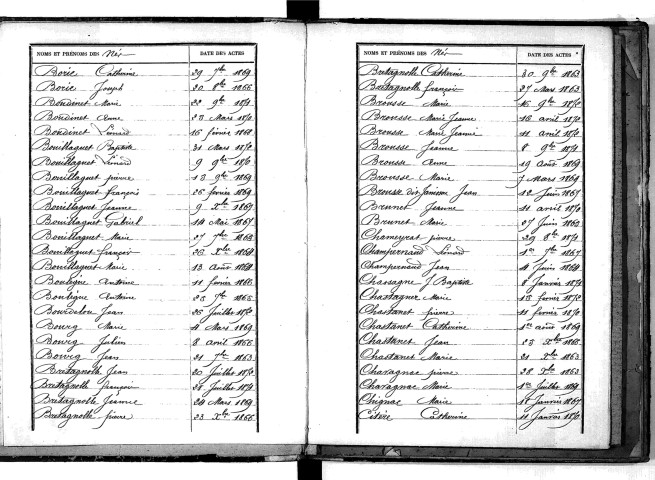 NOMS ET PRÉNOMS DES Nés DATE DES ACTES
Borie Catherine 29 7bre 1869
Borie Joseph 20 8bre 1866
Boudinet Marie 22 9bre
Boudinet Anne 28 Mars
Boudinet Léonard 16 février 1868
Bouillaguet Baptiste 31 Mars
Bouillaguet Léonard 9 9bre
Bouillaguet pierre 13 9bre 1869
Bouillaguet françois 26 février 1869
Bouillaguet Jeanne 9 Xbre 1869
Bouillaguet Gabriel 14 Mai 1867
Bouillaguet Marie 27 7bre 1868
Bouillaguet françois 26 Xbre
Bouillaguet Marie 13 Août
Bouligne Antoine 11 février 1866
Bouligne Antoine 25 7bre 1866
Bourdelou Jean 26 Juillet
Bourg Marie 4 Mars 1869
Bourg Julien 8 avril 1866
Bourg Jean 21 7bre 1863
Bretagnolle Jean 20 Juillet
Bretagnolle françois 28 Juillet
Bretagnolle Jeanne 24 Mars 1869
Bretagnolle pierre 23 Xbre 1866
NOMS ET PRÉNOMS DES Nés DATE DES ACTES
Bretagnolle Catherine 30 9bre 1863
Bretagnolle françois 27 Mars 1863
Brousse Marie 16 9bre
Brousse Marie Jeanne 16 avril
Brousse Marie Jeanne 11 avril
Brousse Jeanne 8 9bre
Brousse Anne 19 Août 1869
Brousse Marie 7 Mars 1869
Brousse dit Jean 12 Juin 1867
Brunet Jeanne 11 avril
Brunet Marie 27 Juin 1862
Chameyrat pierre 29 8bre
Champernaud Léonard 1er 7bre 1867
Champernaud Jean 4 Juin 1864
Chassagne J. Baptiste 8 Janvier
Chastagner Marie 18 février
Chastanet pierre 11 février
Chastanet Catherine 1er août 1869
Chastanet Jean 23 Xbre 1866
Chastanet Marie 21 Xbre 1863
Chavagnac pierre 28 Xbre 1863
Chavagnac Marie 1er Juillet
Chignac Marie 18 Janvier 1867
Catherine 11 Janvier